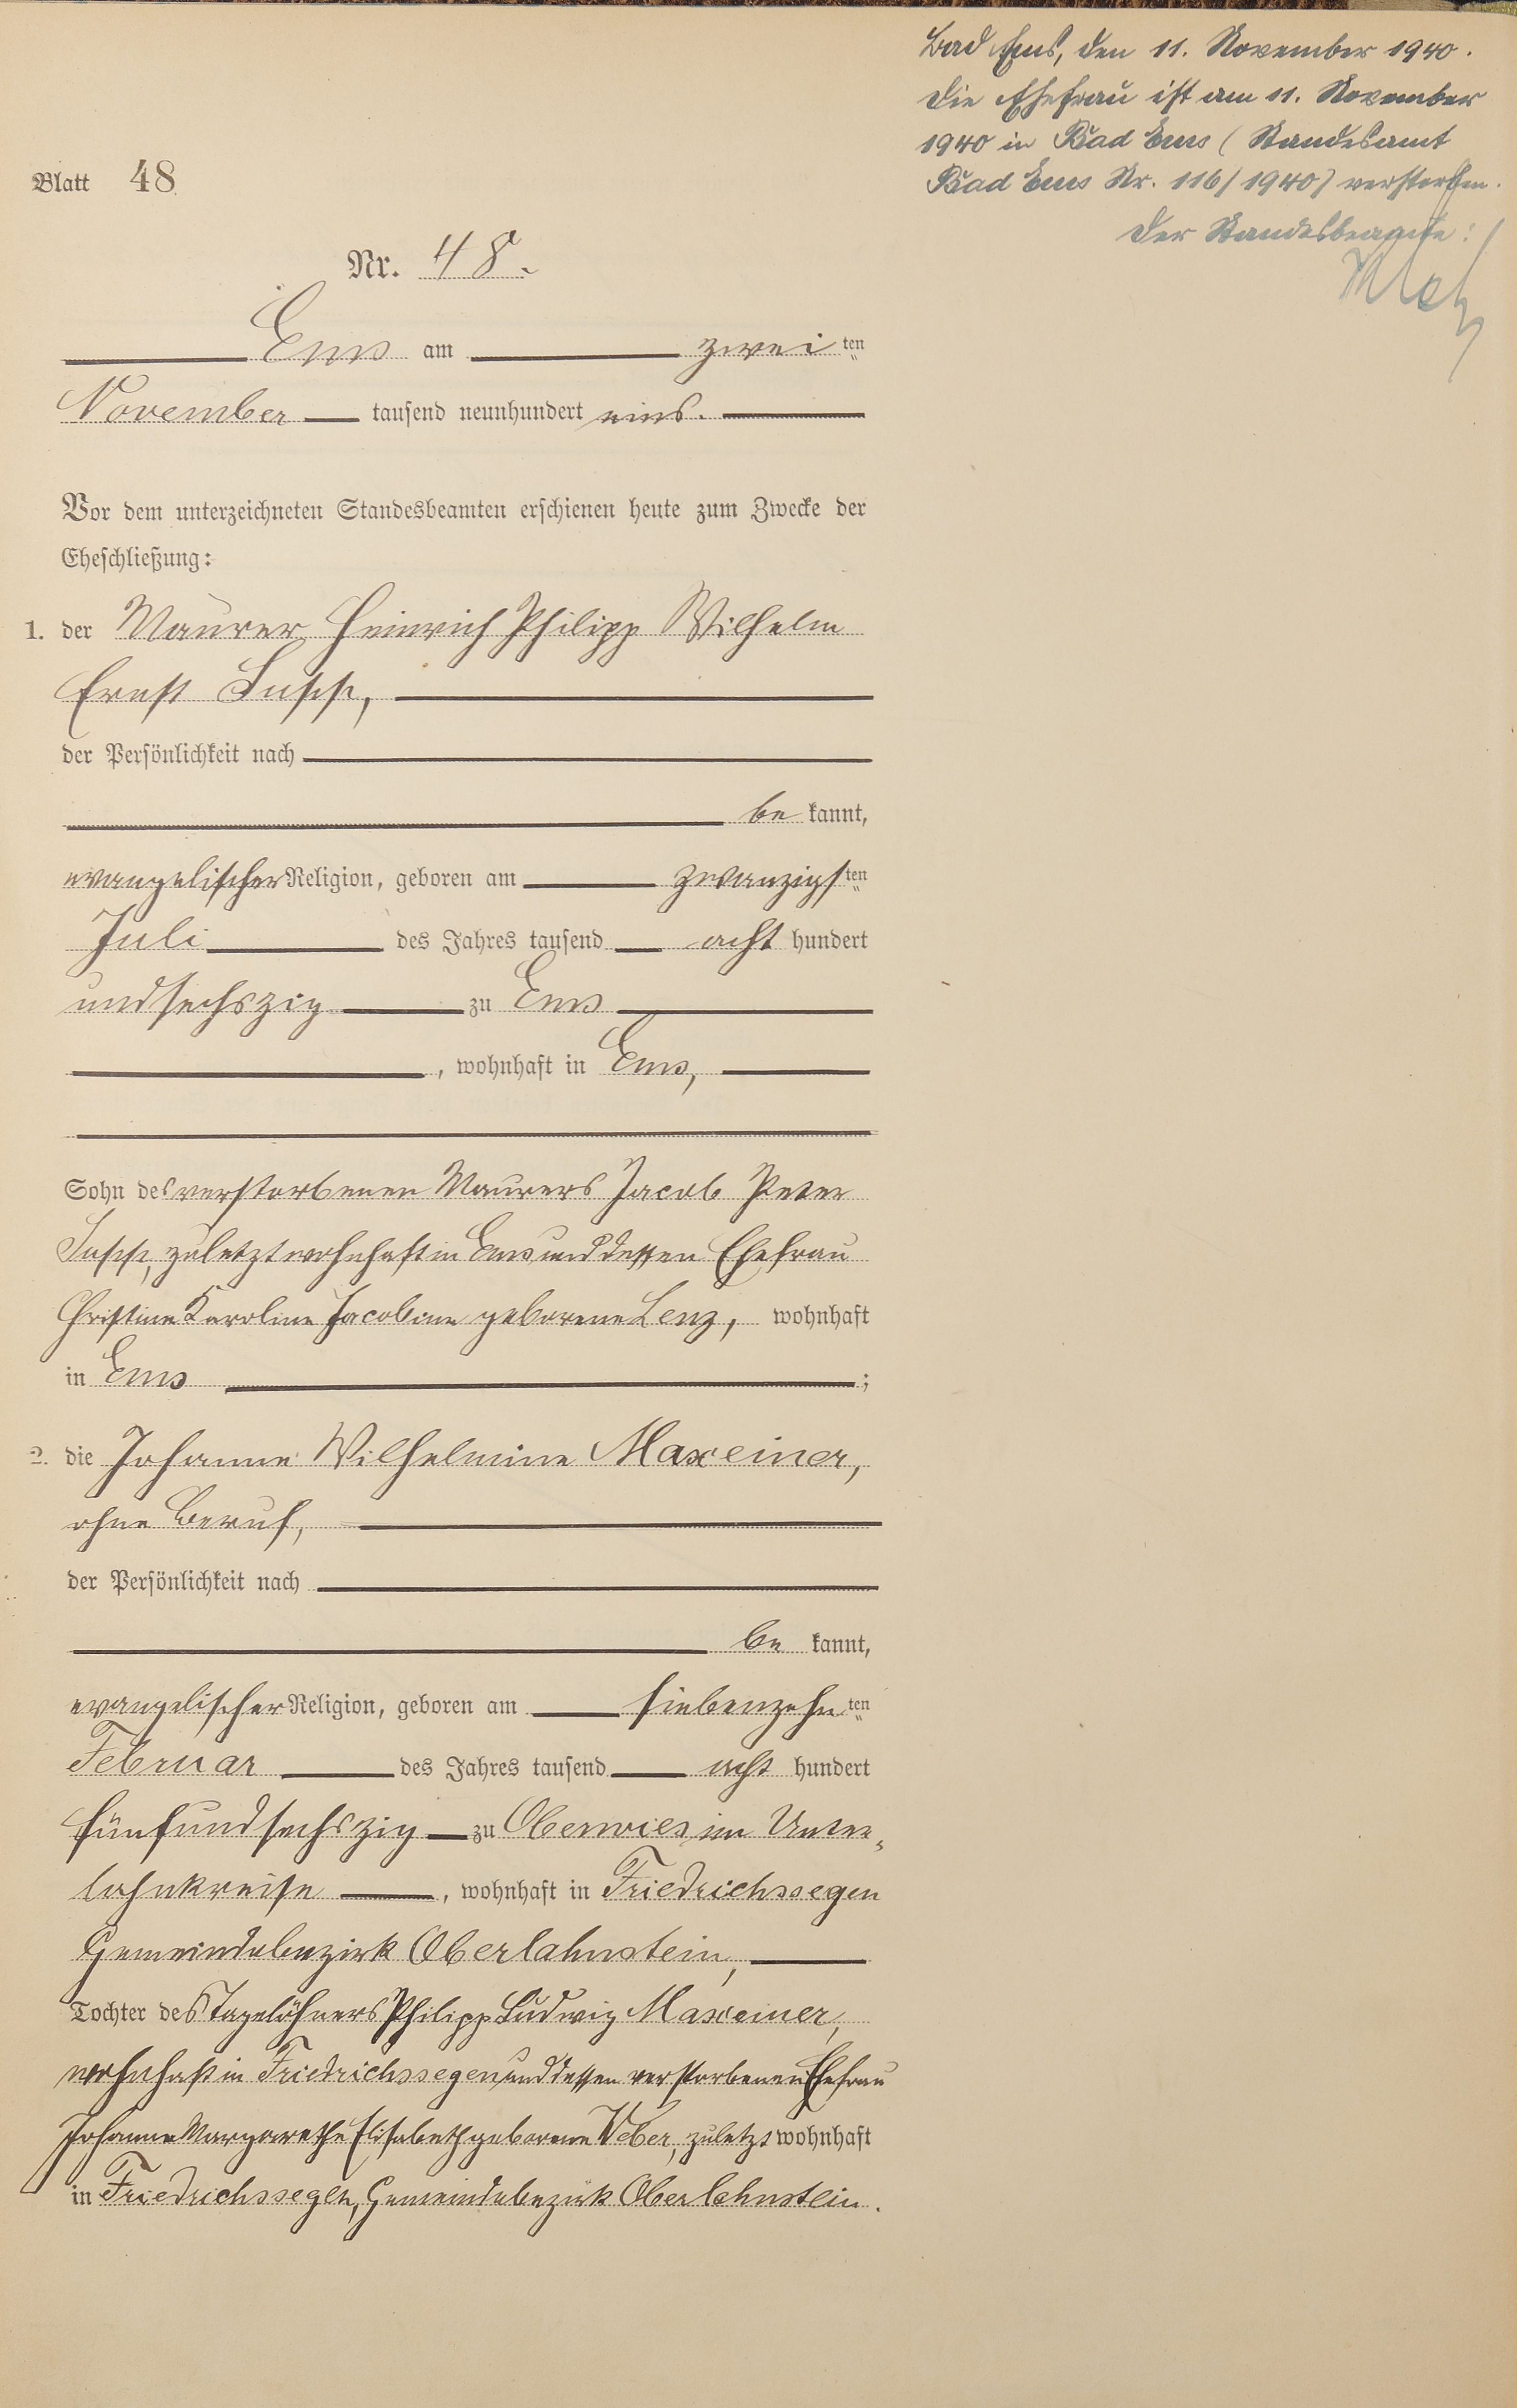 Bad Ems, den 11. November 1940.
Die Ehefrau ist am 11. November
1940 in Bad Ems (Standesamt
Bad Ems Nr. 116/1940) verstorben.
Der Standesbeamte:
Blatt 48
Nr. 48.
Ems am zweiten
November tausend neunhundert eins.
Vor dem unterzeichneten Standesbeamten erschienen heute zum Zwecke der
Eheschließung:
1. der Maurer Heinrich Philipp Wilhelm
Ernst
der Persönlichkeit nach
be kannt,
evangelischer Religion, geboren am zwanzigsten
Juli des Jahres tausend acht hundert
undsechszig zu Ems
, wohnhaft in Ems,
Sohn des verstorbenen Maurers Jacob Peter
zuletzt wohnhaft in Ems und dessen Ehefrau
Christine Karoline Jacobine geborene Lenz, wohnhaft
in Ems ;
2. die Johanne Wilhelmine Maxeiner,
ohne Beruf,
der Persönlichkeit nach
be kannt,
evangelischer Religion, geboren am siebenzehnten
Februar des Jahres tausend acht hundert
fünfundsechszig zu Oberwies im Unter-
lahnkreise , wohnhaft in Friedrichssegen
Gemeindebezirk Oberlahnstein,
Tochter des Tagelöhners Philipp Ludwig Maxeiner,
wohnhaft in Friedrichssegen und dessen verstorbenen Ehefrau
Johanne Margarethe Elisabeth geborene Weber, zuletzt wohnhaft
in Friedrichssegen, Gemeindebezirk Oberlahnstein.